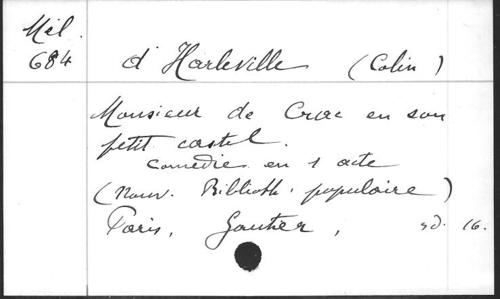 Mél.
684
d'Harleville (Colin)
Monsieur de Crac en son
petit castel.
Comédie en 1 acte
(Nouv. Biblioth. populaire)
Paris, Gautier, sd. 16.